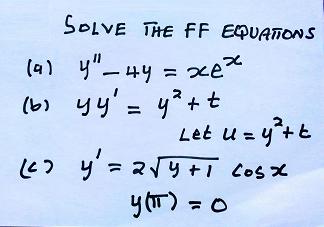 SOLVE THE FF EQUATIONS
(a) y'' - 4y = xeˣ
(b) yy' = y² + t
Let u = y² + t
(c) y' = 2√(y+1) cos x
y(π) = 0